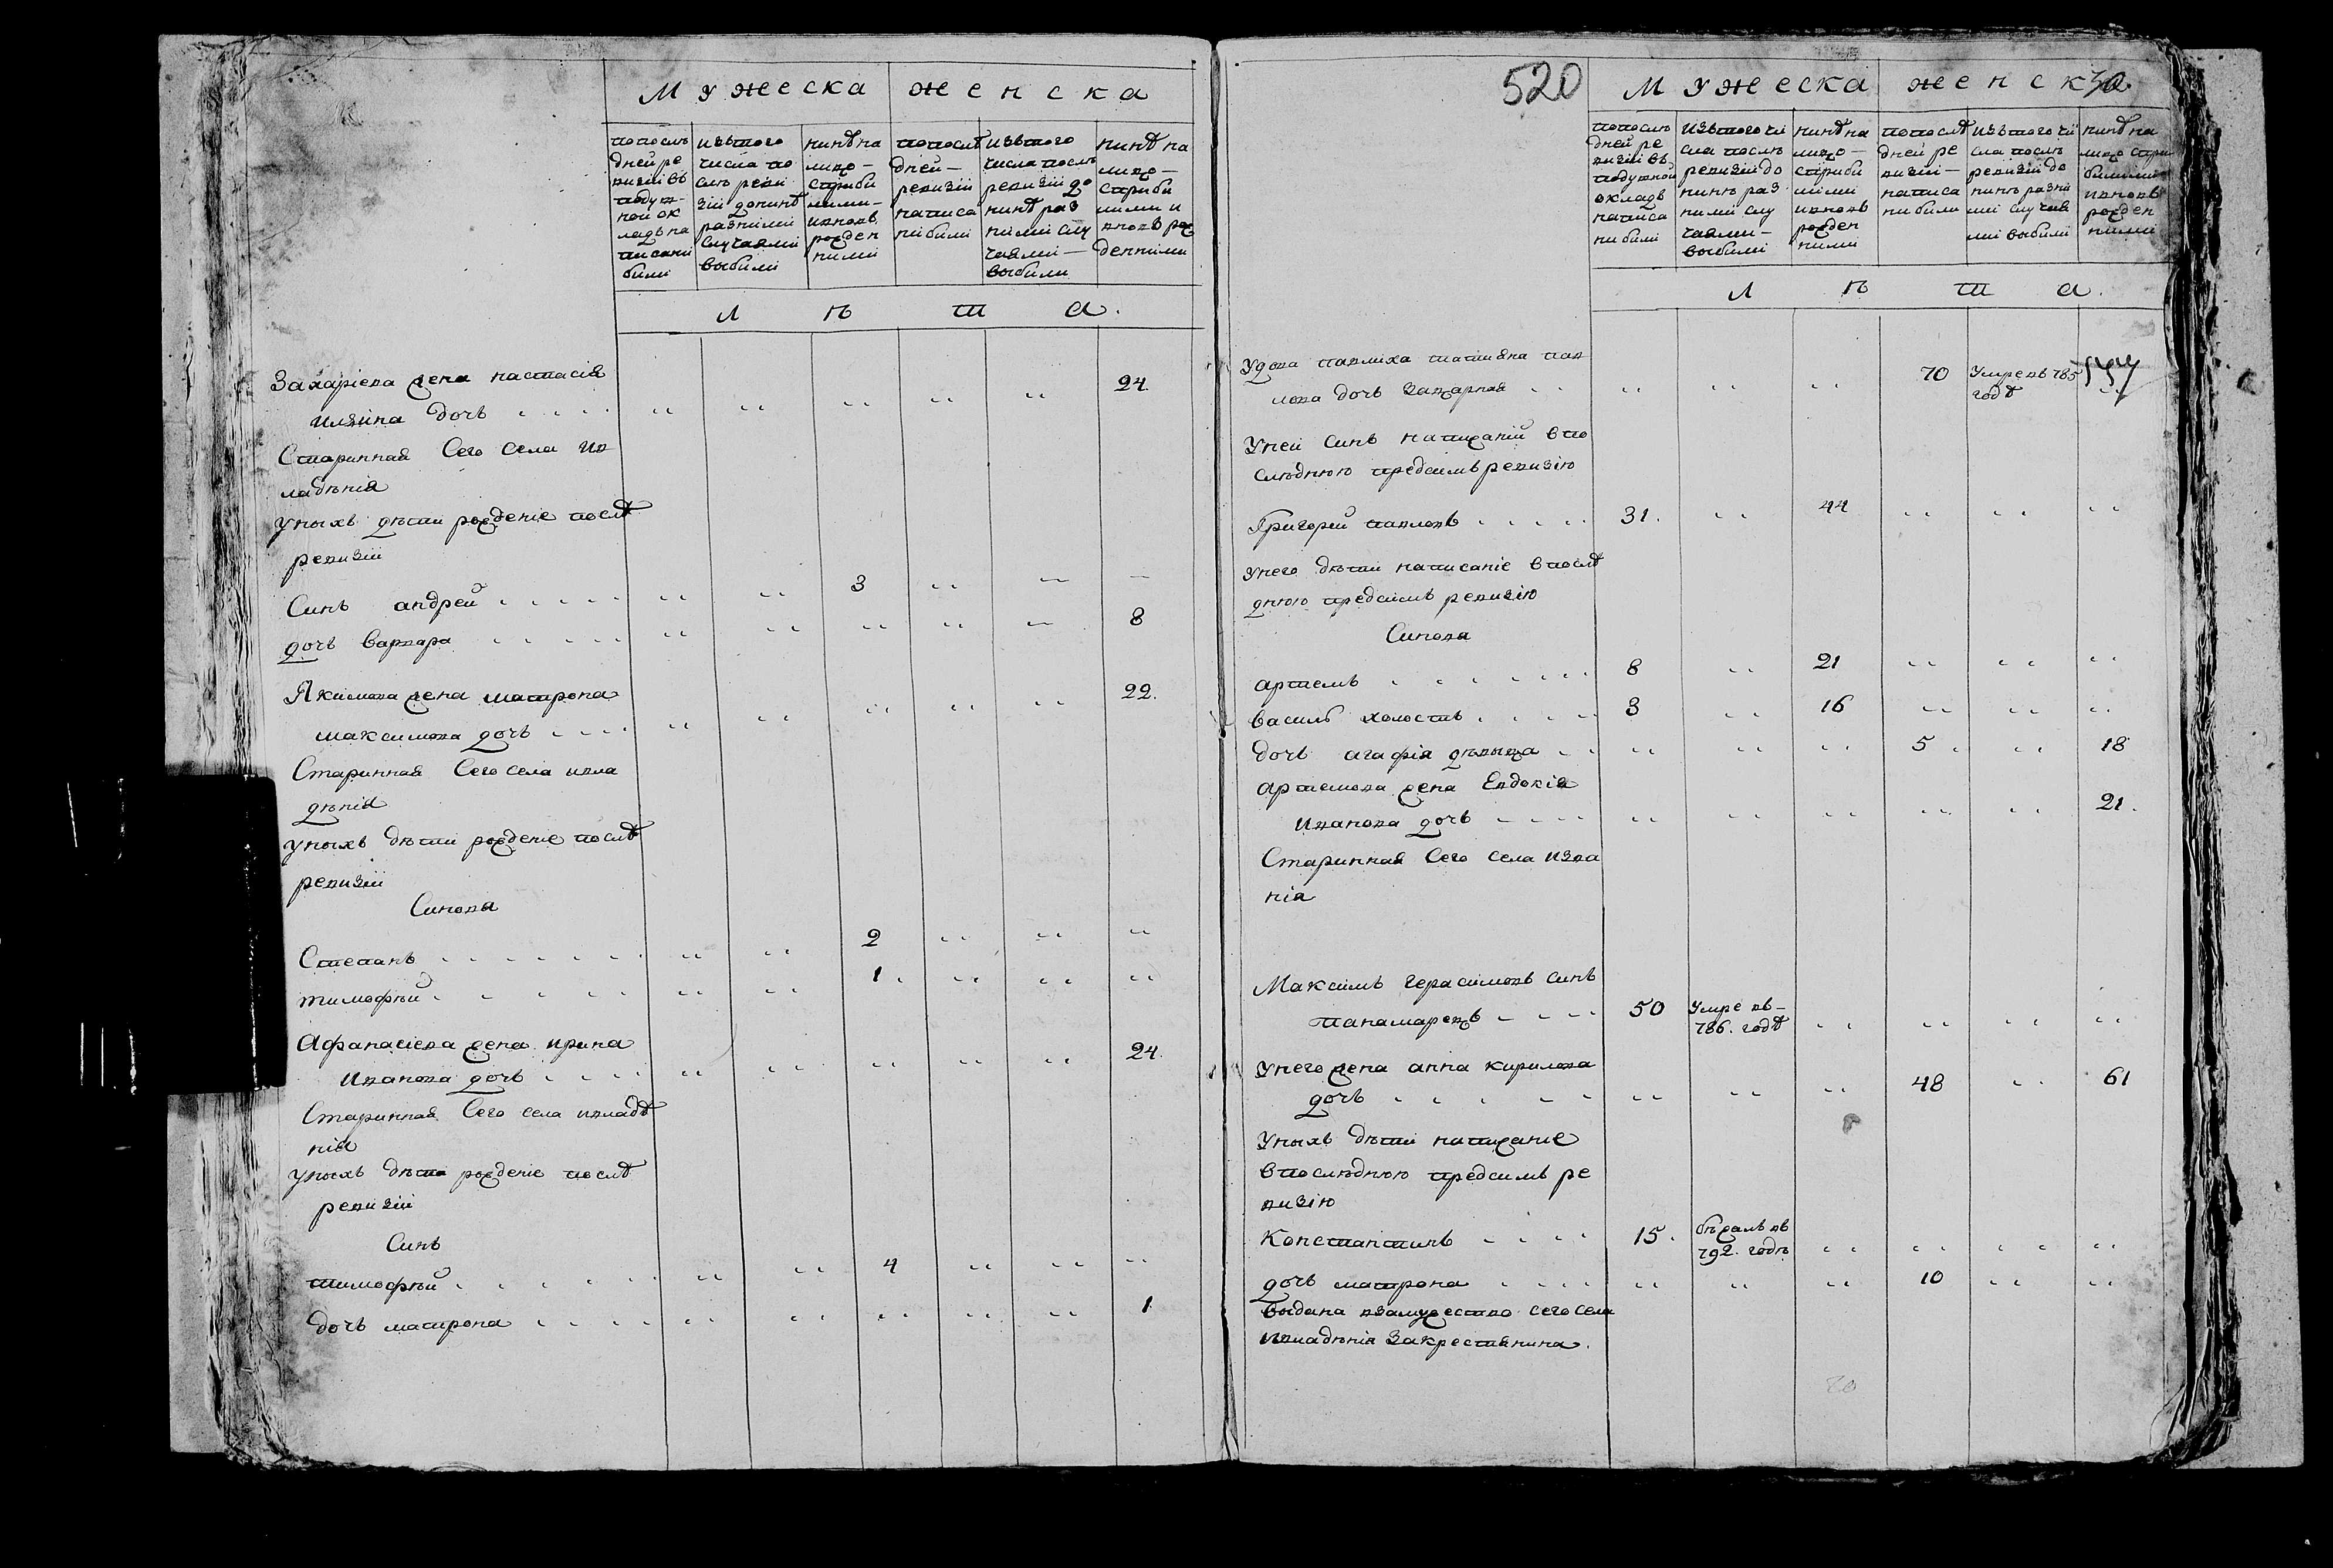 Мужеска женска
попослѣ
дней ре
визіи въ
подуш-
ной ок
ладъ на
писани
били
изътого
числа по
слѣ реви
зіи допинѣ
разними
случаями
выбили
нинѣ на
лицо –
справи
лими –
ивновь
рожден
ними
попослѣ
дней –
ревизіи
написа
ни били
изътого
числа послѣ
ревизіи до
нинѣ раз
ними слу
чаями –
выбили
нинѣ на
лицо –
списби
лими и
вновь рож
денними
л ѣ т а.
Захаріева жена настасія
иляіна дочь 24.
Старинная Сего Села ив
ладѣнія
Уныхъ дѣти рожденіе послѣ
ревизіи
Синъ андрей 3
дочь варвара 8
Якимова жена матрона
максимова дочь 22.
Старинная Сего села ивла
дѣнія
уныхъ дѣти рожденіе послѣ
ревизіи
Синовя
Степанъ 2
тимофѣй 1
Афанасіева жена ирина
иванова дочь 24.
Старинная Сего села ивладѣ
нія
уныхъ дѣти рожденіе послѣ
ревизіи
Синъ
тимофѣй 4
дочь матрона 1
520
Мужеска женска
попослѣ
дней ре
визіи въ
подушной
окладъ
написа
ни били
изътого чи
сла послѣ
ревизіи до
нинѣ раз
ними слу
чаями –
выбили
нинѣ на
лицо –
справи
лими
ивновь
рожден
ними
попослѣ
дней ре
визіи –
написа
ни били
изътого чи
сла послѣ
ревизіи до
нинѣ разни
ми случая
ми выбили
нинѣ на
лицо спри
билими
ивновь
рожден
ними
л ѣ т а.
Удова павлиха татияна пав
лова дочь Захарная 70 Умре въ 785
годѣ
Уней синъ написаній впо
слѣднюю предсимъ ревизію
Григорей павловъ 31. 44
Унего дѣти написаніе впослѣ
днюю предсимъ ревизію
Синовя
артемъ 8 21
василь холостъ 3 16
дочь агафія дѣвица 5 18
артемова жена Евдокія
иванова дочь 21.
Старинная Сего села извла
нія
Максимъ герасимовъ синъ
панамаренко 50 Умре въ –
786. годѣ
Унего жена анна кирилова
дочь 48 61
Уныхъ дѣти написаніе
впослѣднюю предсимъ ре
визію
Константинъ 15. бѣжалъ въ
792. годѣ
дочь матрона 10
выдана взамужество сего села
ивладѣнія Закрестянина.